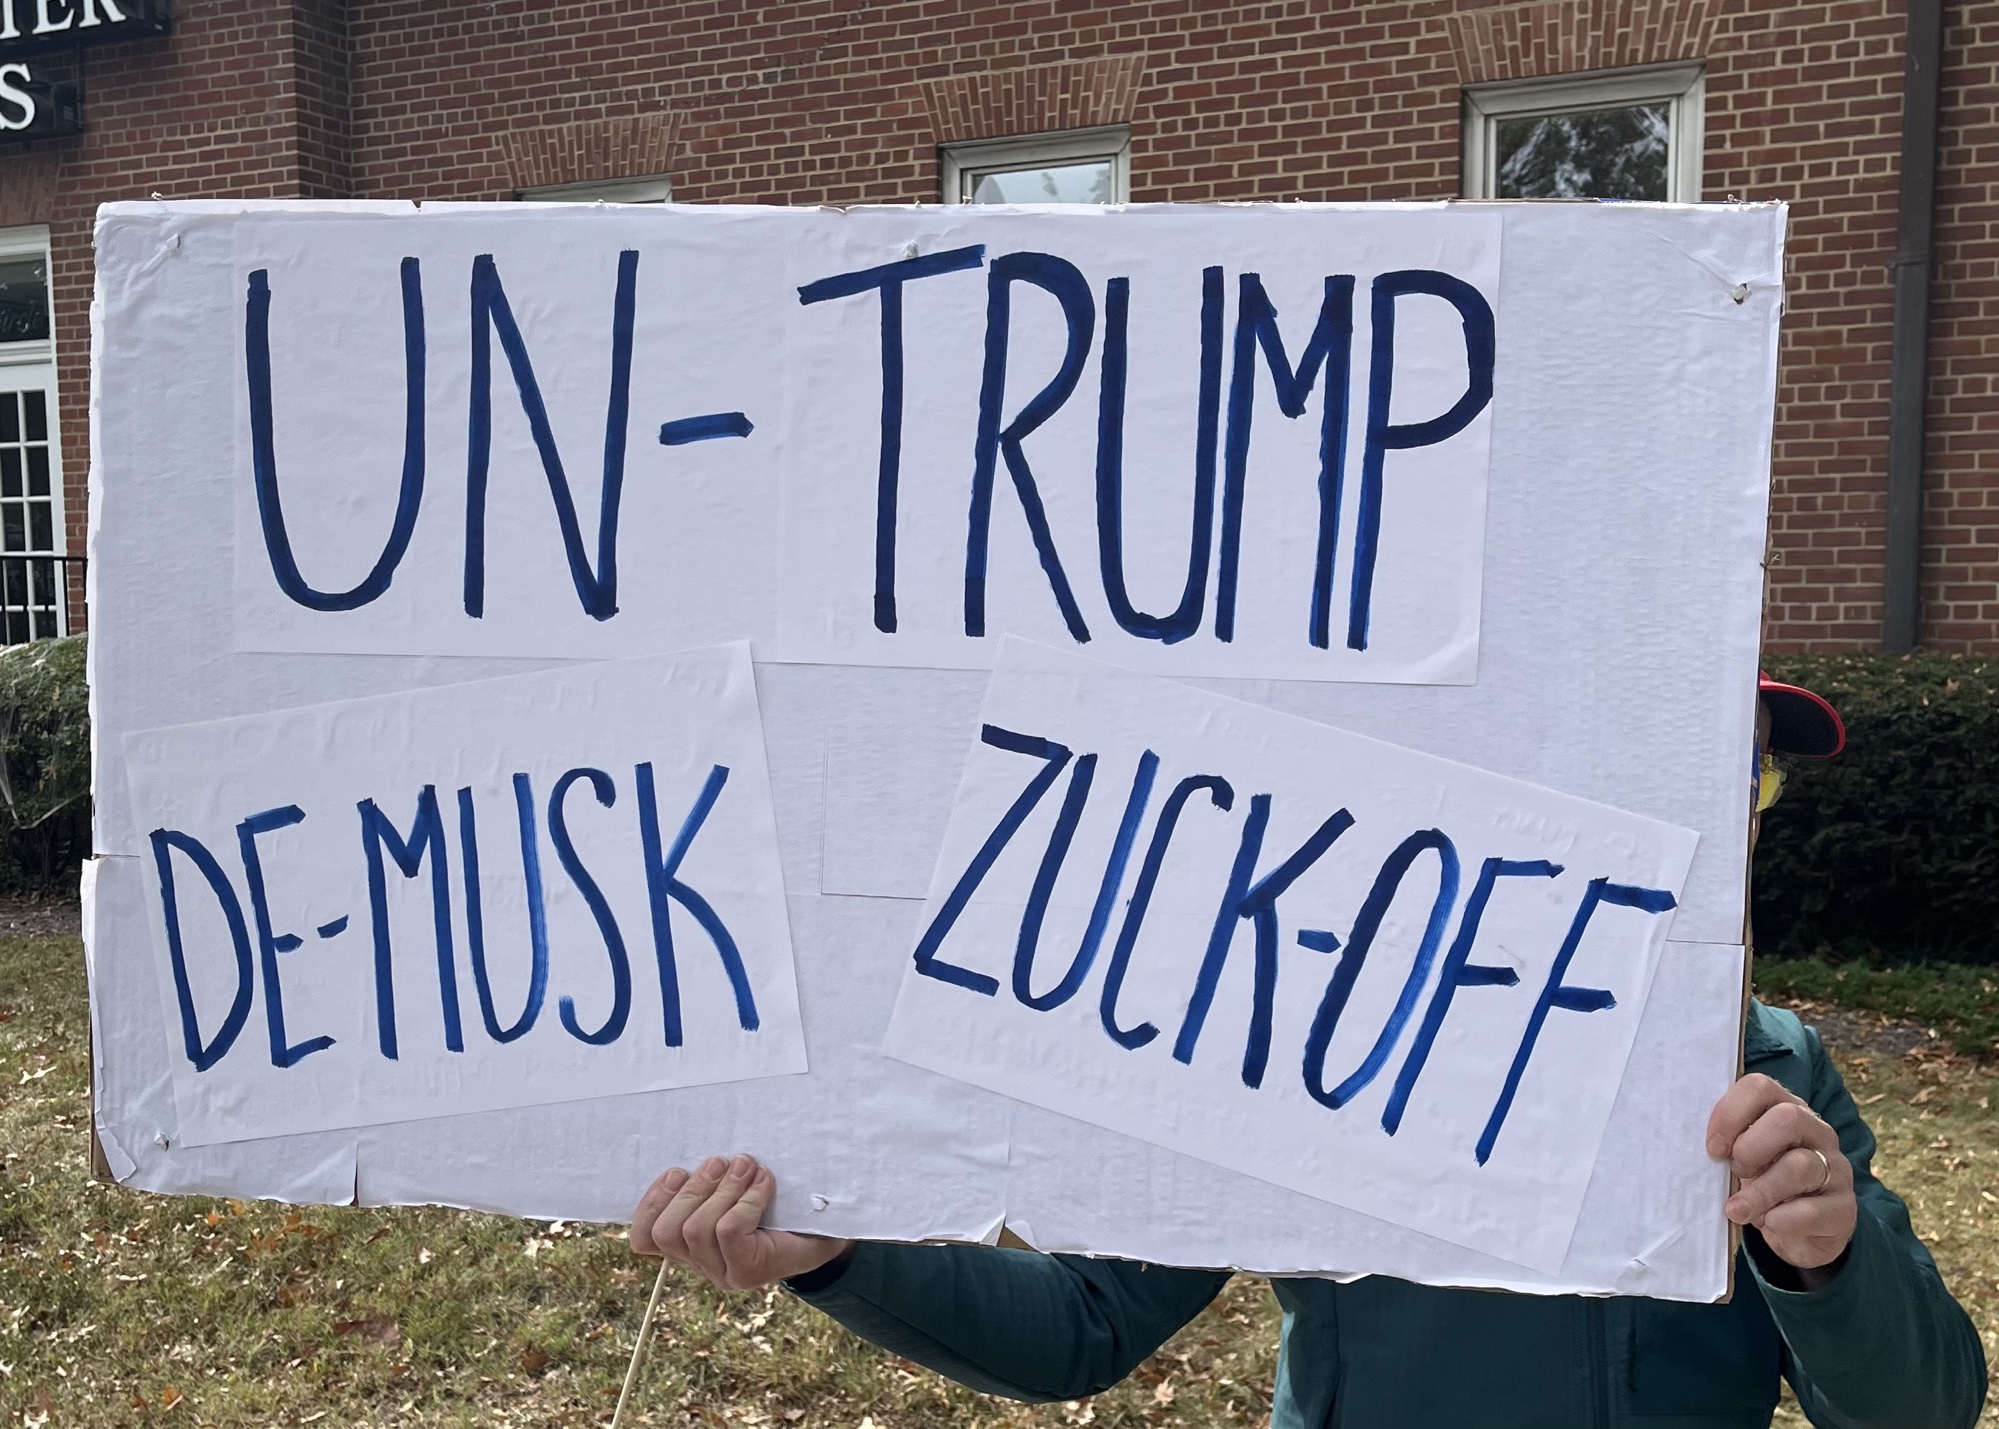 TER
S
UN-TRUMP
DE-MUSK
ZUCK-OFF